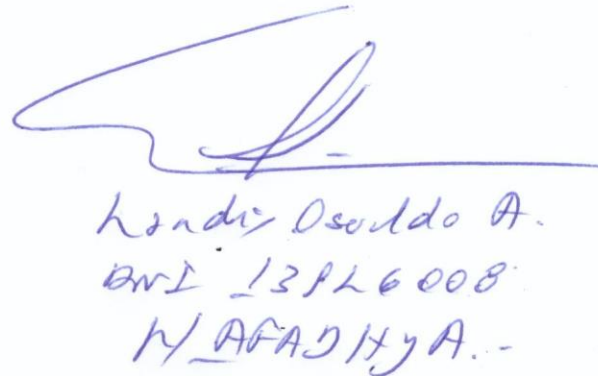 Landi, Osvaldo A.
DNI 13826008
P/ AFADHyA.-